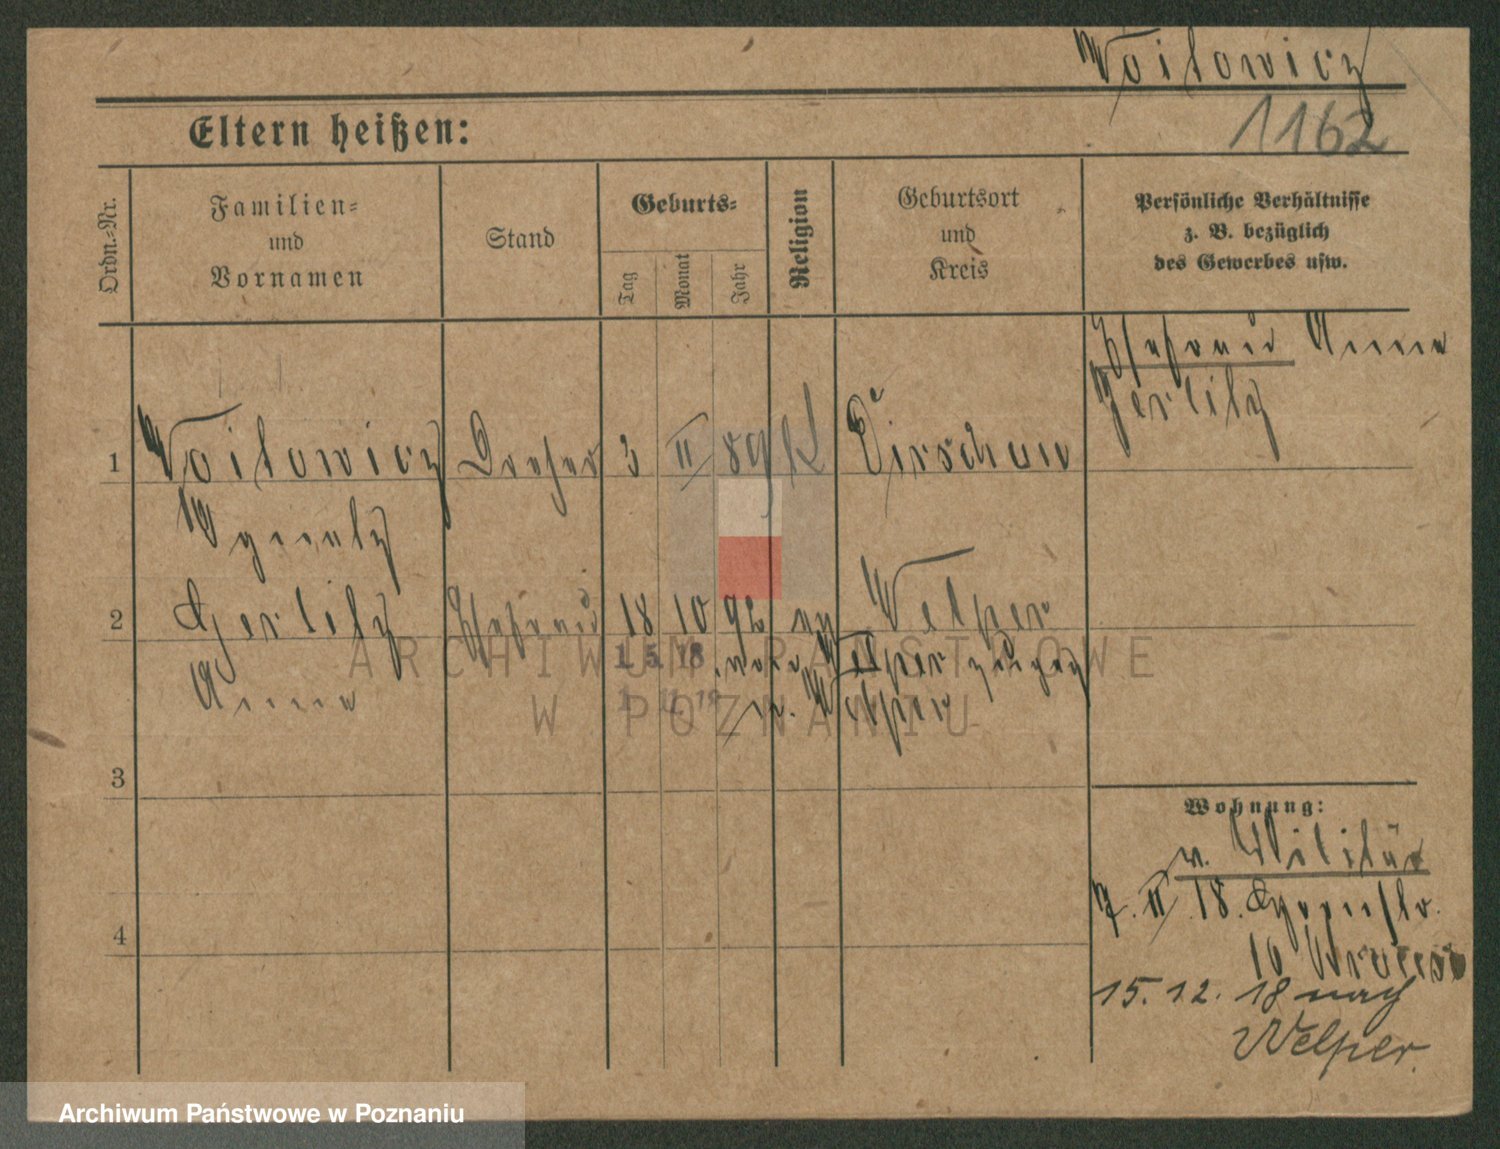 Woitowicz
1162
Eltern heißen:
Ordn.=Nr.
Familien=
und
Vornamen
Stand
Geburts=
Tag
Monat
Jahr
Religion
Geburtsort
und
Kreis
Persönliche Verhältnisse
z. B. bezüglich
des Gewerbes usw.
Ehefrau Anna
Gerlitz
1 Woitowicz Dreher 3 II 89 K Dirschau
Ignatz
2 Gerlitz Ehefrau 18 10 92 Welper
Anna
1. 5. 18
Welper
3
4
Wohnung:
v. Militär
7. II. 18.
10
15. 12. 18 nach
Welper.
ARCHIWUM PAŃSTWOWE
W POZNANIU
Archiwum Państwowe w Poznaniu